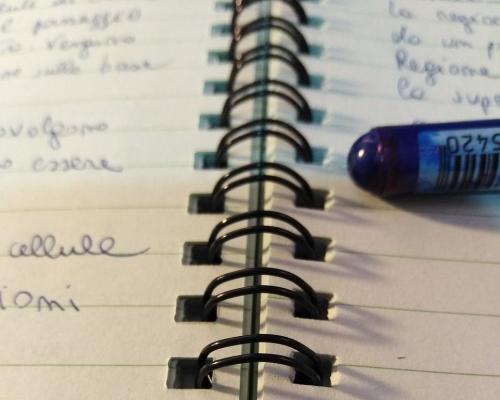 e passaggio
vengono
ne sulla base
avvolgono
o essere
cellule
ioni
la region
da un p
Regione
la sup
5420